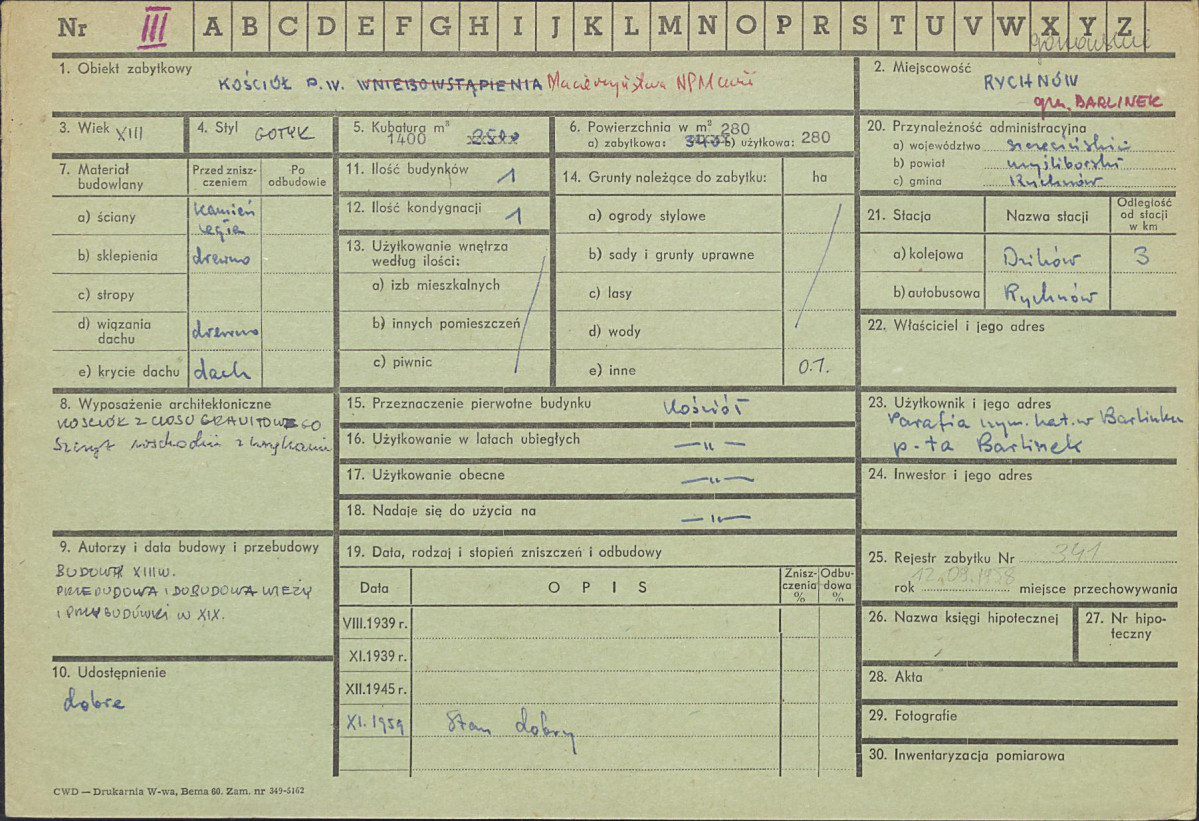 Nr III A B C D E F G H I J K L M N O P R S T U V W X Y Z
gorzowskie
1. Obiekt zabytkowy
KOŚCIÓŁ P.W. WNIEBOWSTĄPIENIA Macierzyństwa NPMarii
2. Miejscowość
RYCHNÓW
gm. BARLINEK
3. Wiek XIII
4. Styl GOTYK
5. Kubatura m³
1400
6. Powierzchnia w m² 280
a) zabytkowa: b) użytkowa: 280
7. Materiał budowlany
Przed znisz-
czeniem
Po
odbudowie
a) ściany kamień
cegła
b) sklepienia drewno
c) stropy
d) wiązania
dachu drewno
e) krycie dachu dach
8. Wyposażenie architektoniczne
KOŚCIÓŁ Z CIOSU GRANITOWEGO
Szczyt wschodni z wnękami
9. Autorzy i data budowy i przebudowy
BUDOWA XIII W.
PRZEBUDOWA I DOBUDOWA WIEŻY
I PRZYBUDÓWKI W XIX.
10. Udostępnienie
dobre
11. Ilość budynków 1
12. Ilość kondygnacji 1
13. Użytkowanie wnętrza
według ilości:
a) izb mieszkalnych
b) innych pomieszczeń
c) piwnic
14. Grunty należące do zabytku: ha
a) ogrody stylowe
b) sady i grunty uprawne
c) lasy
d) wody
e) inne 0.1.
15. Przeznaczenie pierwotne budynku Kościół
16. Użytkowanie w latach ubiegłych — „ —
17. Użytkowanie obecne — „ —
18. Nadaje się do użycia na — „ —
19. Data, rodzaj i stopień zniszczeń i odbudowy
Data OPIS Znisz-
czenia
% Odbu-
dowa
%
VIII.1939 r.
XI.1939 r.
XII.1945 r.
XI.1959 Stan dobry
20. Przynależność administracyjna
a) województwo szczecińskie
b) powiat myśliborski
c) gmina Rychnów
21. Stacja Nazwa stacji Odległość
od stacji
w km
a) kolejowa Dzików 3
b) autobusowa Rychnów
22. Właściciel i jego adres
23. Użytkownik i jego adres
Parafia rzym. kat. w Barlinku
p-ta Barlinek
24. Inwestor i jego adres
25. Rejestr zabytku Nr 341
rok 12.09.1958 miejsce przechowywania
26. Nazwa księgi hipotecznej
27. Nr hipo-
teczny
28. Akta
29. Fotografie
30. Inwentaryzacja pomiarowa
CWD — Drukarnia W-wa, Bema 60. Zam. nr 349-5162